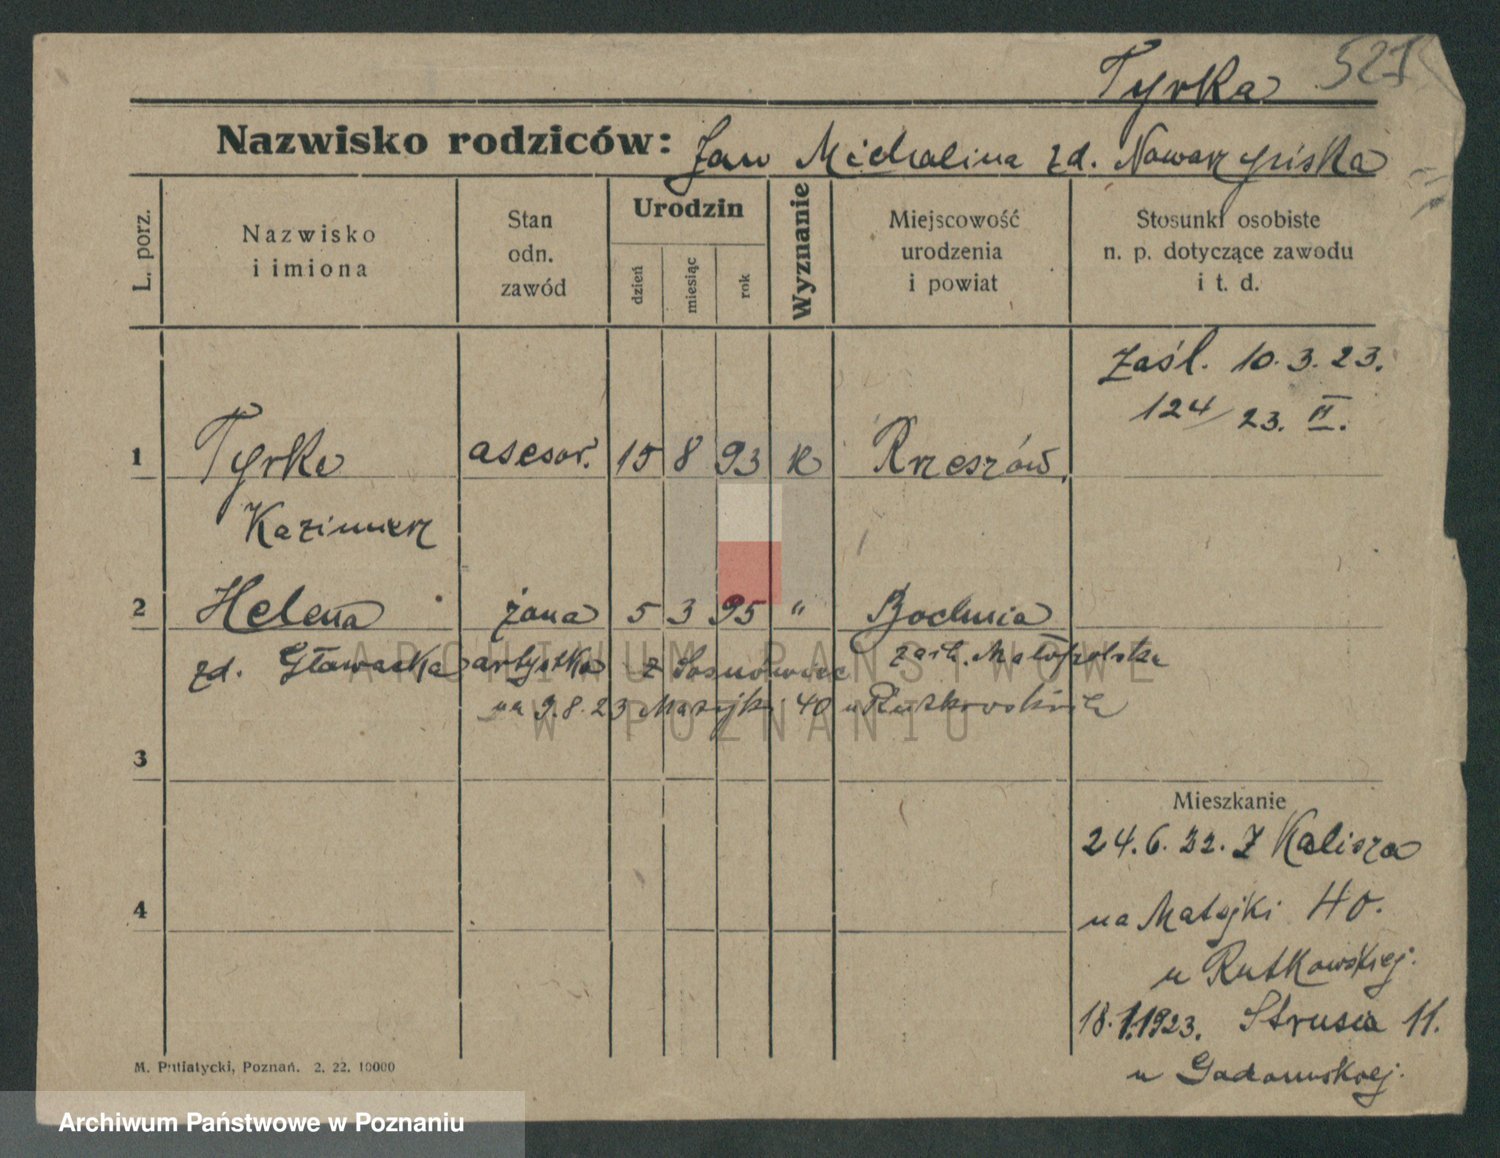 Tyrka 527
Nazwisko rodziców: Jan Michalina zd. Nowarzyńska
L. porz.
Nazwisko
i imiona
Stan
odn.
zawód
Urodzin
dzień
miesiąc
rok
Wyznanie
Miejscowość
urodzenia
i powiat
Stosunki osobiste
n. p. dotyczące zawodu
i t. d.
Zaśl. 10.3.23.
124/23. II.
1 Tyrka asesor. 15 8 93 K Rzeszów.
Kazimierz
2 Helena żona 5 3 95 " Bochnia
zd. artystka z Sosnowiec Małopolska
na 9.8.23 Matejki 40 u Rutkowskich
3
Mieszkanie
24.6.22. Z Kalisza
4
na Matejki 40.
u Rutkowskiej.
18.1.1923. Strusia 11.
u Gadomskiej.
M. Putiatycki, Poznań. 2. 22. 10000
ARCHIWUM PAŃSTWOWE
W POZNANIU
Archiwum Państwowe w Poznaniu